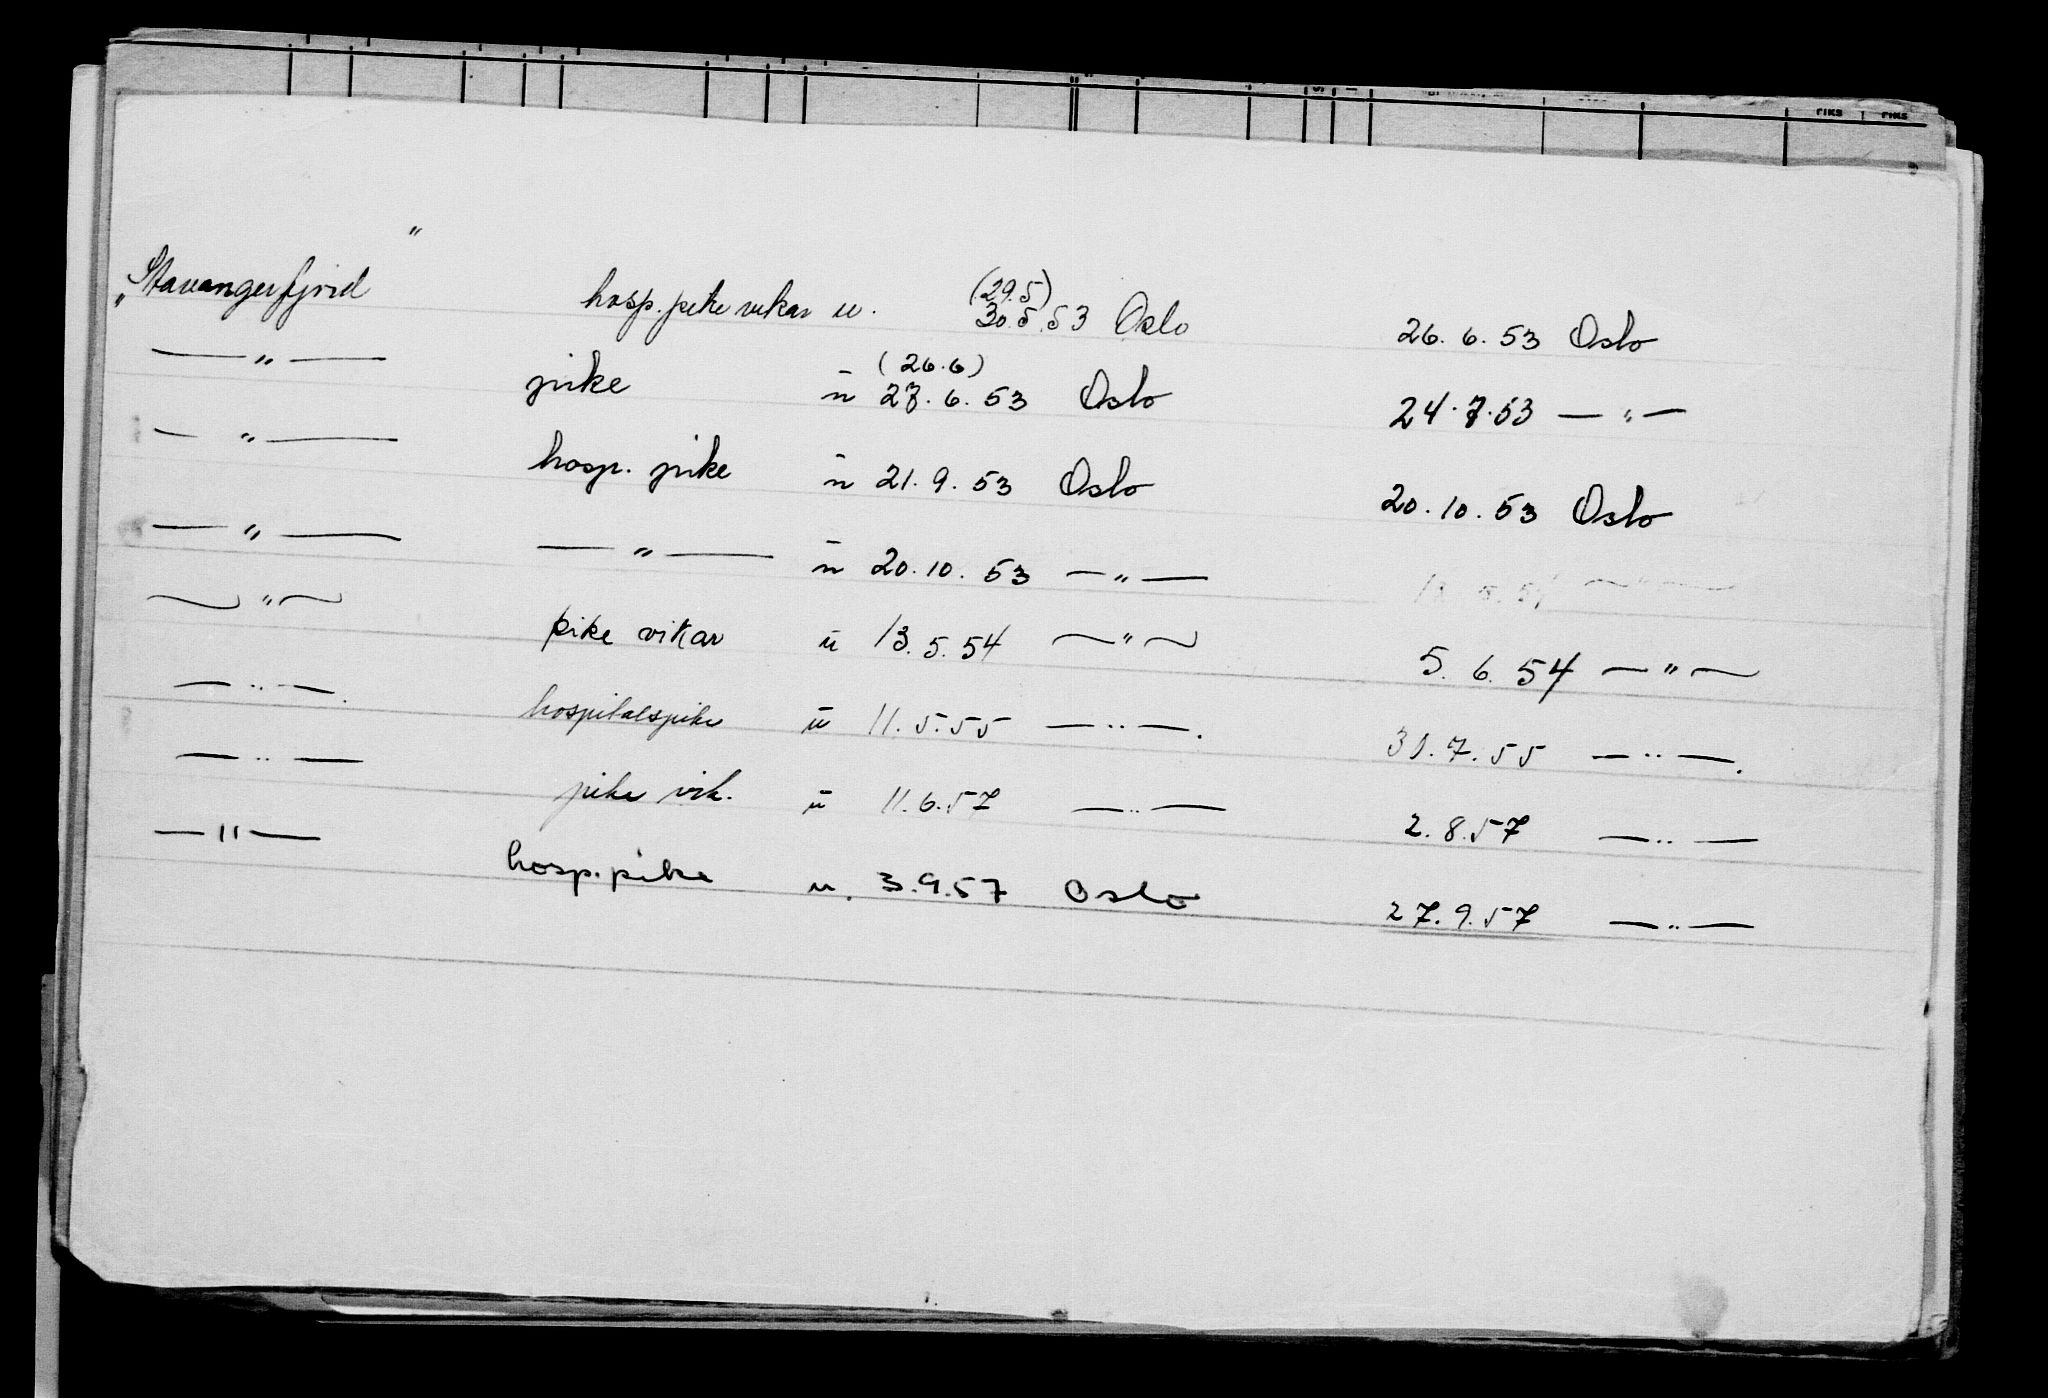 RIKS RIKS
"Stavangerfjord" hosp. pike vikar u. (29.5) 30.5.53 Oslo 26.6.53 Oslo
— " — pike u (26.6) 27.6.53 Oslo 24.7.53 — " —
— " — hosp. pike u 21.9.53 Oslo 20.10.53 Oslo
— " — — " — u 20.10.53 — " — — " —
— " — pike vikar u 13.5.54 — " — 5.6.54 — " —
— " —. hospitalspike u 11.5.55 — " —. 31.7.55 — " —.
— " — pike vik. u 11.6.57 — " — 2.8.57 — " —
— " — hosp. pike u. 3.9.57 Oslo 27.9.57 — " —